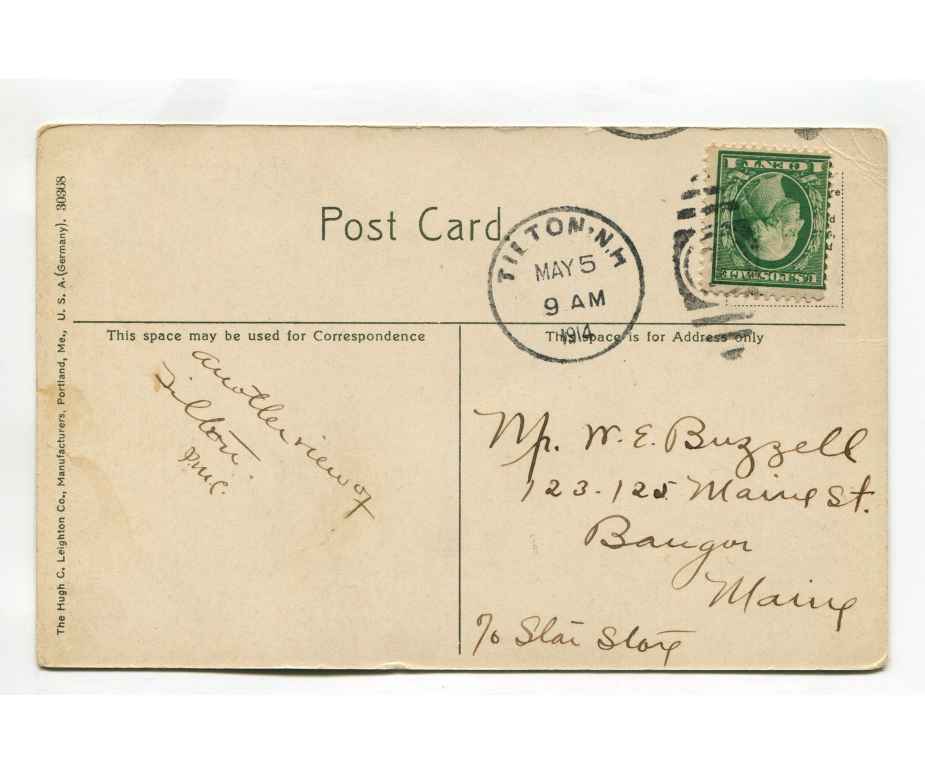 Post Card.
TILTON, N.H.
MAY 5
9 AM
1914
1 CENT 1
U.S. POSTAGE
This space may be used for Correspondence
This space is for Address only
another view of
Tilton.
Mr. W. E. Buzzell
123-125 Maine St.
Bangor
Maine
℅ Star Store
The Hugh C. Leighton Co., Manufacturers, Portland, Me., U. S. A. (Germany). 30368